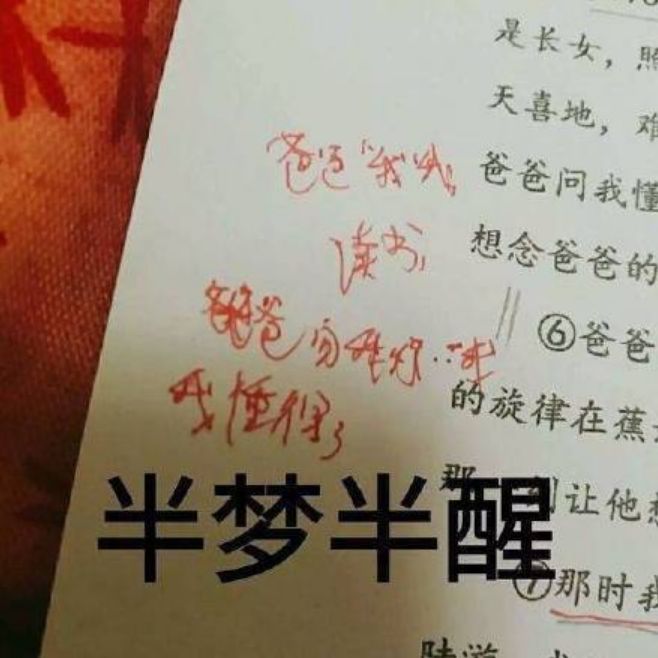 是长女，
天喜地，难
爸爸问我懂
想念爸爸的
⑥爸爸
的旋律在蕉
那一刻让他想
⑦那时我
爸爸"我
读书,
爸爸
我懂得了
半梦半醒